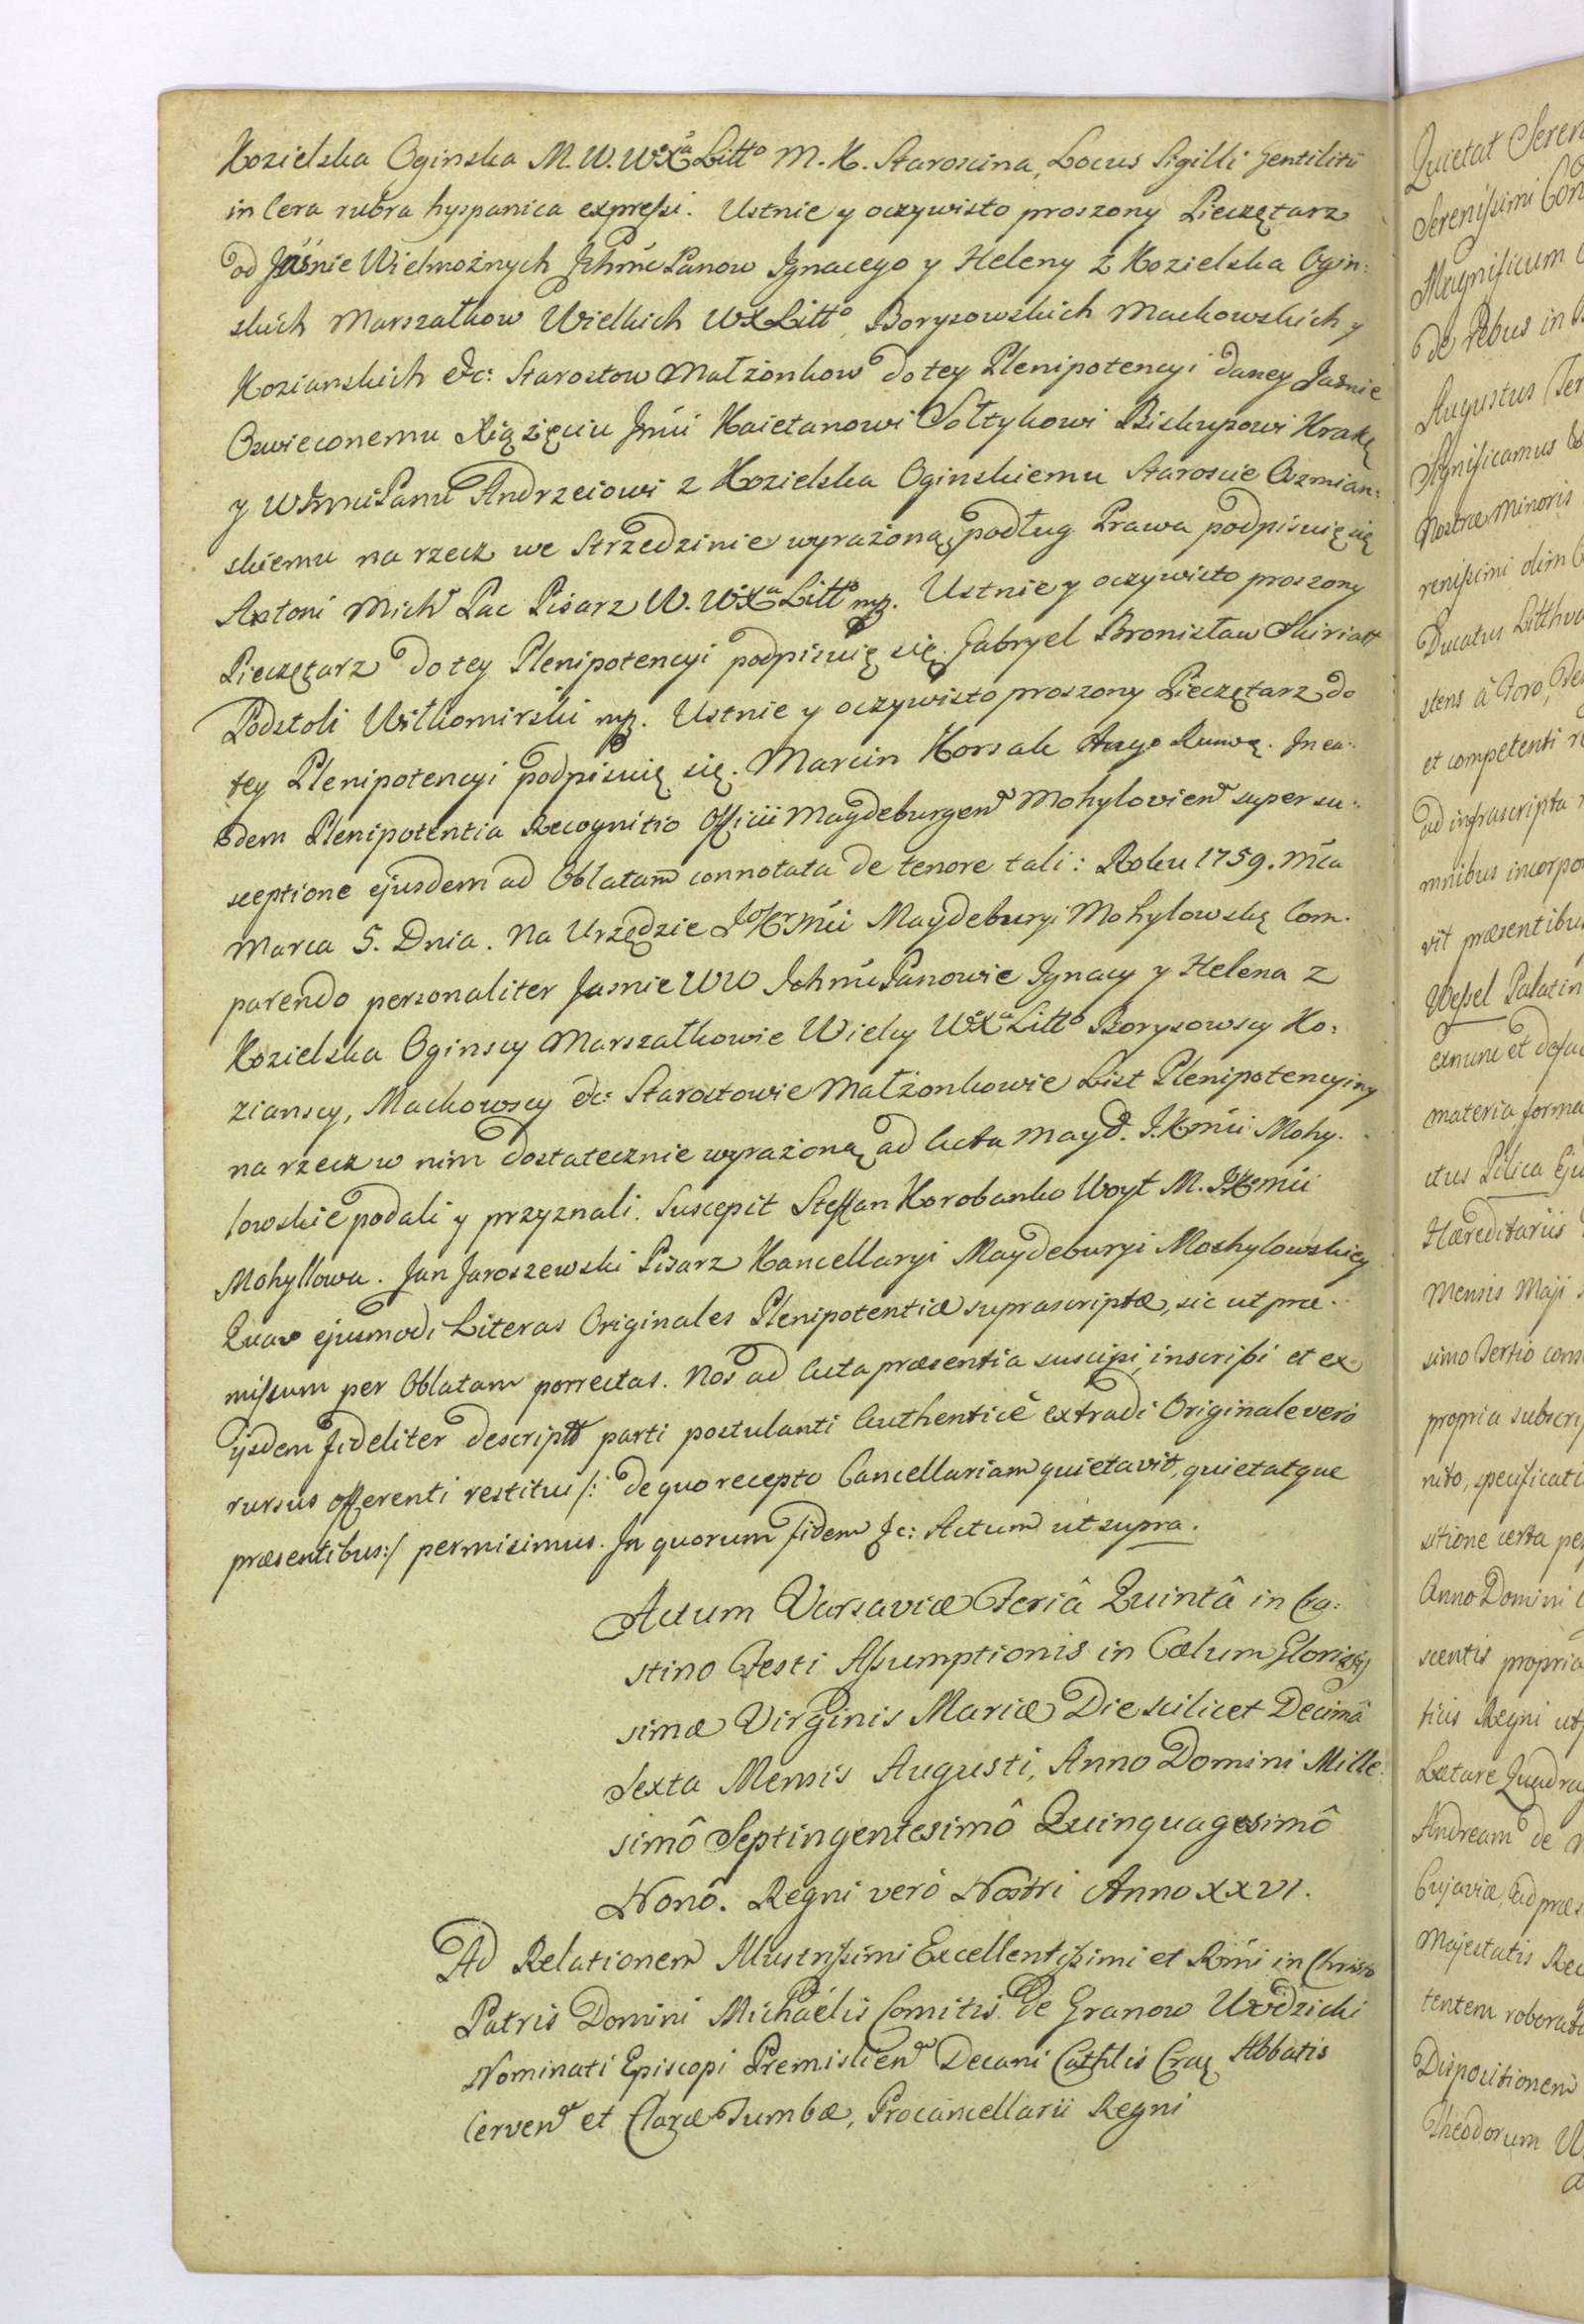 Kozielska Oginska M. W. WXa Litto M. K. Staroscina, Locus Sigilli Gentilitii
in Cera rubra hyspanica expressi. Ustnie y oczywisto proszony Pieczętarz
od Jaśnie Wielmożnych Ichmć Panow Ignacego y Heleny z Kozielska Ogin:
skich Marszałkow Wielkich WXLitto, Borysowskich Mackowskich y
Kozianskich &c: Starostow Małżonkow do tey Plenipotencyi daney Jasnie
Oswieconemu Xiążęciu Jmći Kaietanowi Sołtykowi Biskupowi Krakę
y WJmci Panu Andrzeiowi z Kozielska Oginskiemu Staroscie Oszmian:
skiemu na rzecz we strzedzinie wyrażoną, podług Prawa podpisuię się
Antoni Michł Pac Pisarz W. WXa Litto mp. Ustnie y oczywisto proszony
Pieczętarz do tey Plenipotencyi podpisuię się. Gabryel Bronisław
Podstoli Wiłkomirski mp. Ustnie y oczywisto proszony Pieczętarz do
tey Plenipotencyi podpisuię się. Marcin Korsak. In ea:
dem Plenipotentia Recognitio Officii Magdeburgen Mohylovien super su:
sceptione ejusdem ad Oblatam connotata de tenore tali: Roku 1759. mca
Marca 5. Dnia. Na Urzędzie JoKrMći Maydeburyi Mohylowskę Com.
parendo personaliter Jasnie WW Ichmć Panowie Ignacy y Helena z
Kozielska Oginscy Marszałkowie Wielcy WXa Litto Borysowscy Ko:
zianscy, Mackowscy &c: Starostowie Małżonkowie List Plenipotencyiny
na rzecz w nim dostatecznie wyrażoną ad Acta Mayd. J.Kmći Mohy.
lowskie podali y przyznali. Suscepit Steffan Korobanko Woyt M. JKmći
Mohyllowa. Jan Jaroszewski Pisarz Kancellaryi Maydeburyi Mochylowskiey
Quas ejusmodi Literas Originales Plenipotentiæ suprascriptæ, sic ut præ.
missum per Oblatam porrectas. Nos ad Acta præsentia suscipi, inscribi et ex
ijsdem fideliter descriptt parti postulanti Authenticè extradi Originale verò
rursus offerenti restitui /: de quo recepto Cancellariam quietavit, quietatque
præsentibus:/ permisimus. In quorum fidem &c: Actum ut supra.
Actum Varsaviæ Feriâ Quintâ in Cra:
stino Festi Assumptionis in Cælum Gloriosis
simæ Virginis Mariæ Die scilicet Decimâ
Sexta Mensis Augusti, Anno Domini Mille
simô Septingentesimô Quinquagesimô
Nonô. Regni verò Nostri Anno XXVI.
Ad Relationem Illustrissimi Excellentissimi et Rmi in Christo
Patris Domini Michaëlis Comitis de Granow Wodzicki
Nominati Episcopi Premislien Decani Cathlis Crac Abbatis
Cerven et Claræ Tumbæ, Procancellarii Regni
Quietat Seren
Serenissimi Con
Magnificum
de Rebus in
Augustus Ter
Significamus
Nostræ minoris
renissimi olim
Ducatus Litthva
stens à Foro,
et competenti
ad infrascripta
mnibus incorpo
vit præsentibus
Wessel Palatin
exnunc et defac
materia forma
ctus Pilica Eju
Hæreditariis
Mensis Maji
simo Tertio cons
propria subscrip
nito, specificat
sitione certa per
Anno Domini
scentis propria
ticis Regni ut
Lætare Quadrag
Andream de
Cujaviæ, ad præs
Majestatis Re
tentem robora
Dispositionem
Theodorum